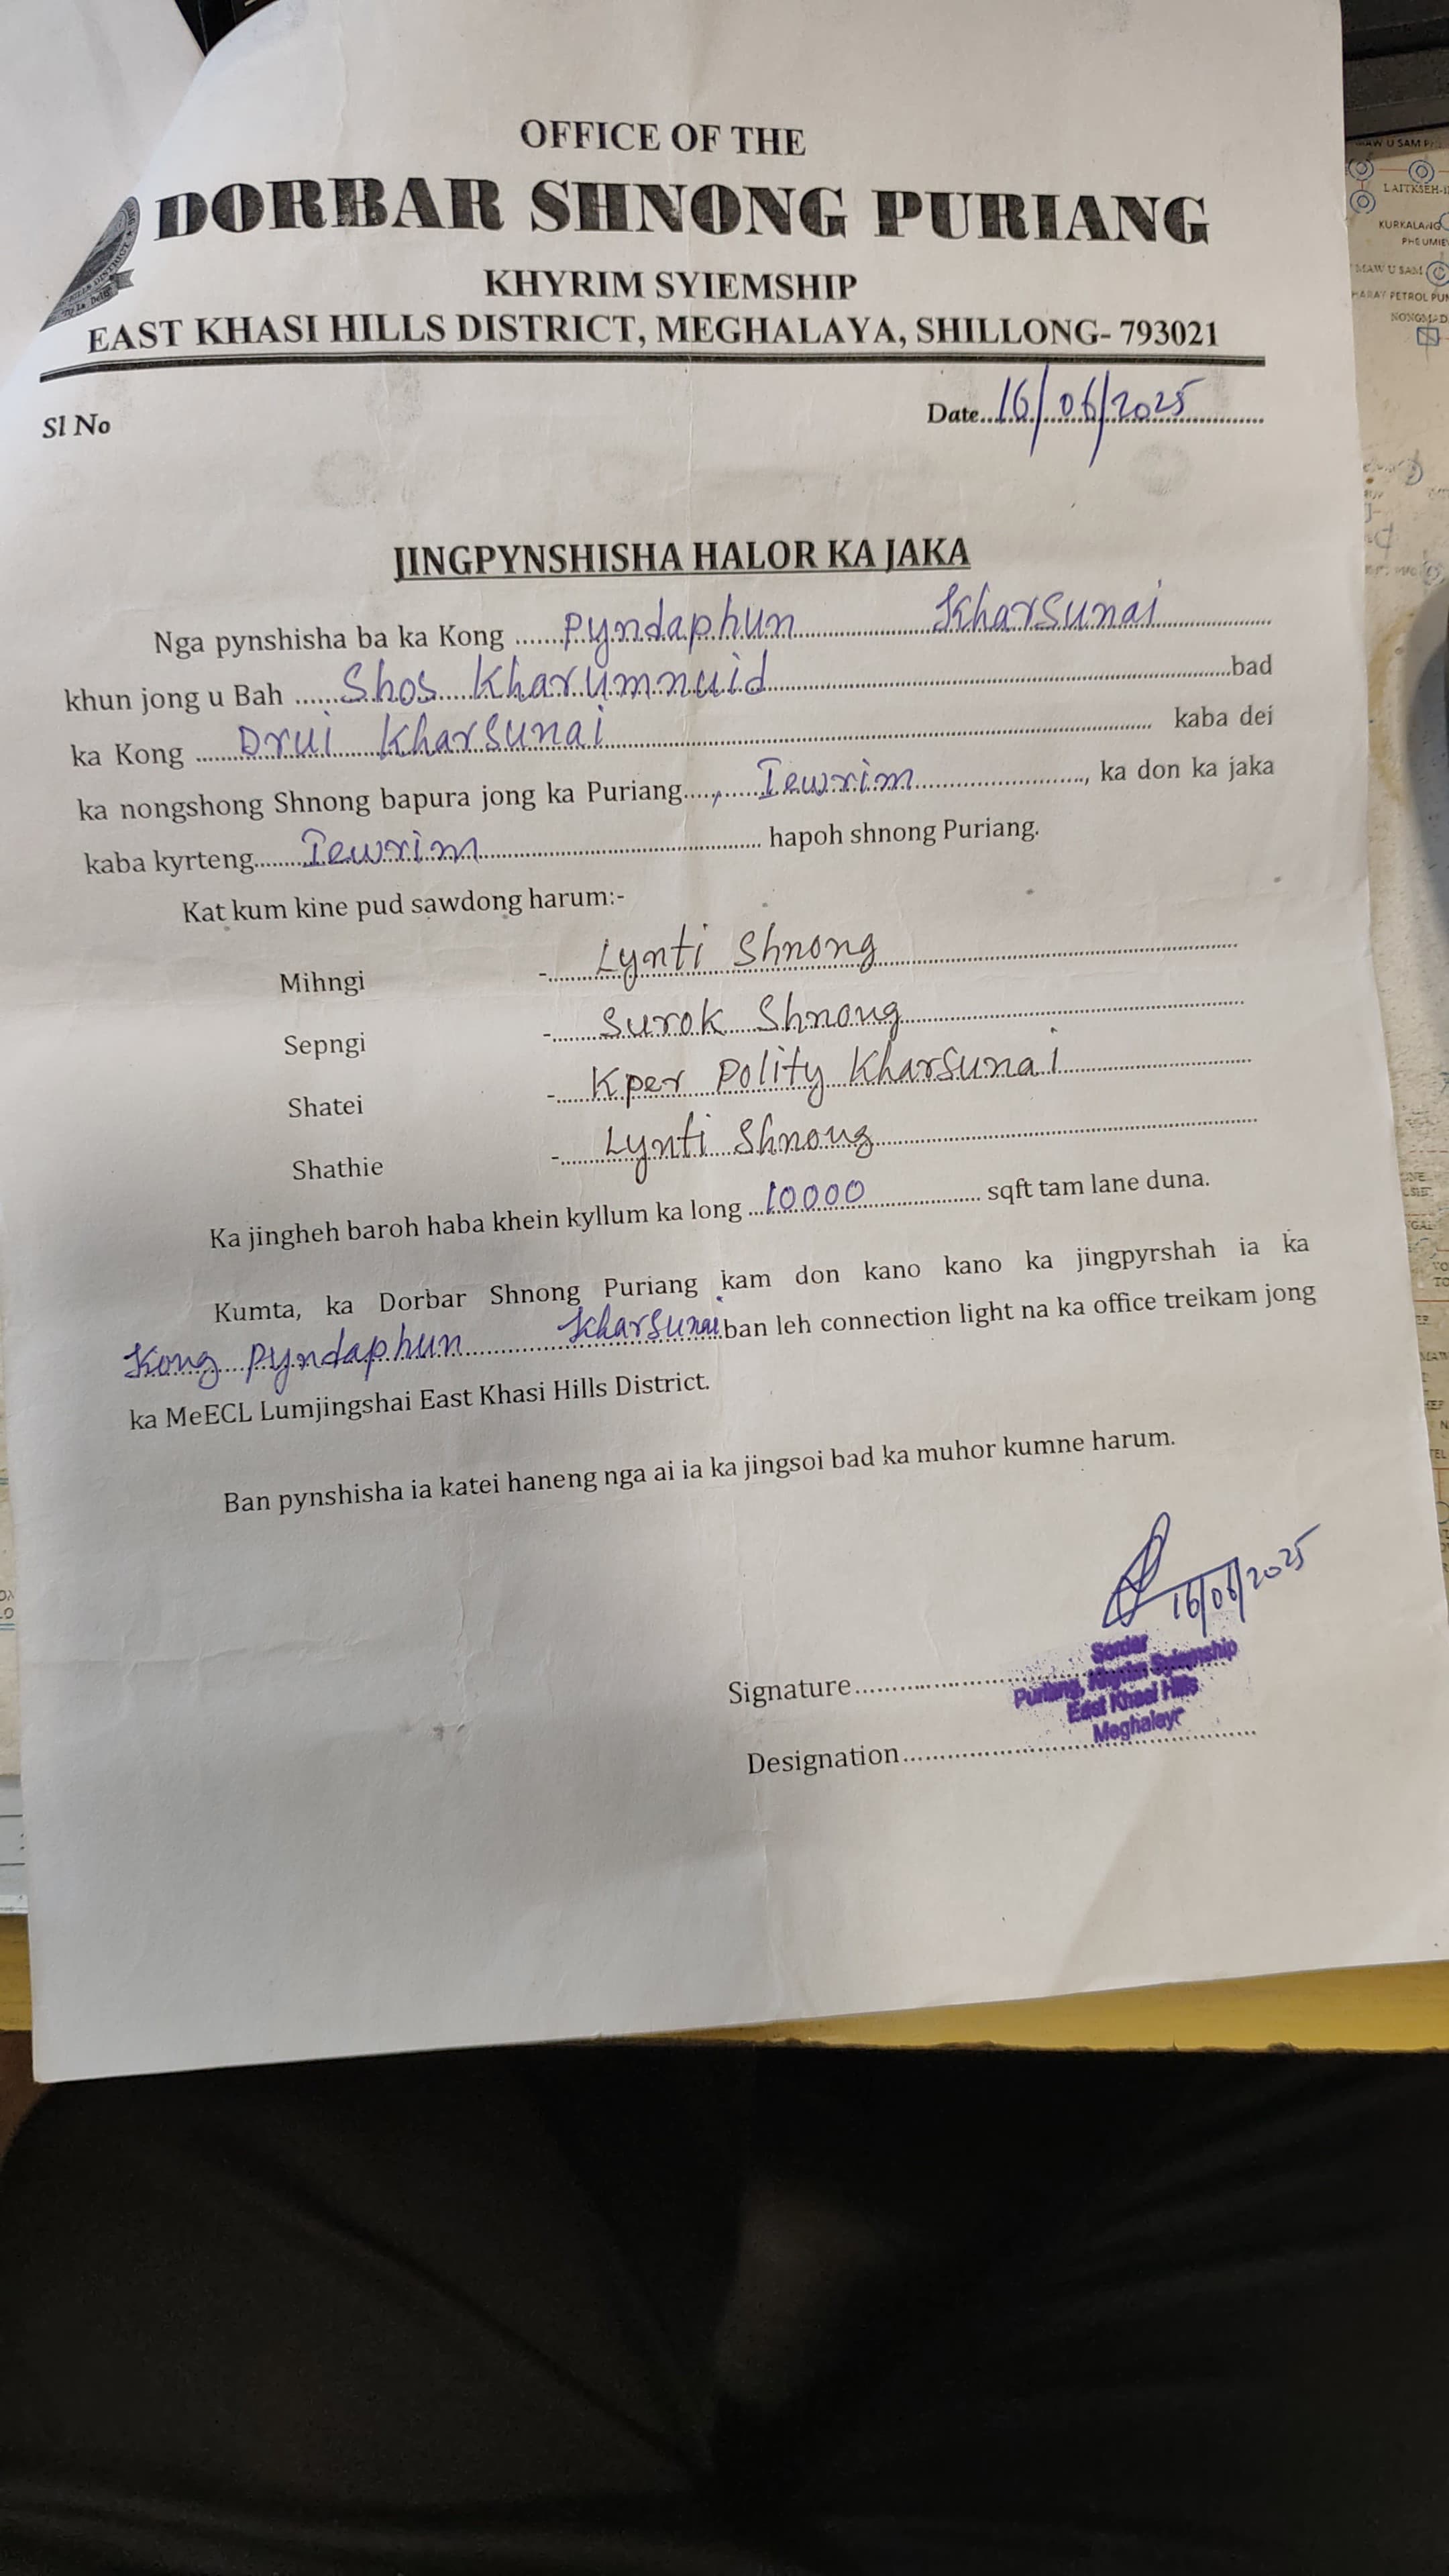 OFFICE OF THE
DORBAR SHNONG PURIANG
KHYRIM SYIEMSHIP
EAST KHASI HILLS DISTRICT, MEGHALAYA, SHILLONG- 793021
Sl No
Date 16/06/2025
JINGPYNSHISHA HALOR KA JAKA
Nga pynshisha ba ka Kong Pyndaphun Kharsunai
khun jong u Bah Shos Kharumnuid bad
ka Kong Drui Kharsunai kaba dei
ka nongshong Shnong bapura jong ka Puriang, Iewrim, ka don ka jaka
kaba kyrteng Iewrim hapoh shnong Puriang.
Kat kum kine pud sawdong harum:-
Mihngi - Lynti Shnong
Sepngi - Surok Shnong
Shatei - Kper Polity Kharsunai
Shathie - Lynti Shnong
Ka jingheh baroh haba khein kyllum ka long 10000 sqft tam lane duna.
Kumta, ka Dorbar Shnong Puriang kam don kano kano ka jingpyrshah ia ka
Kong Pyndaphun Kharsunai ban leh connection light na ka office treikam jong
ka MeECL Lumjingshai East Khasi Hills District.
Ban pynshisha ia katei haneng nga ai ia ka jingsoi bad ka muhor kumne harum.
16/06/2025
Signature
Sordar
Puriang, Khyrim Syiemship
East Khasi Hills
Meghalaya
Designation
LAITKSEH
KURKALANG
MAW U SAM
PETROL PUM